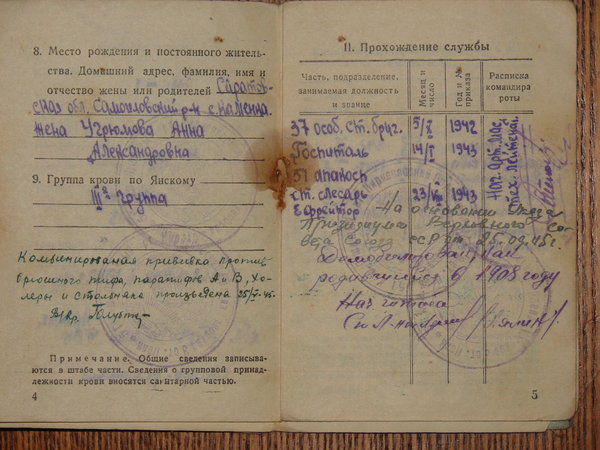 8. Место рождения и постоянного житель-
ства. Домашний адрес, фамилия, имя и
отчество жены или родителей Саратов-
ская обл. Самойловский р-н с.
жена Угрюмова Анна
Александровна
9. Группа крови по Янскому
IIIя группа
Комбинированая прививка против
брюшного тифа, паратифов А и В, хо-
леры и столбняка произведена
Примечание. Общие сведения записыва-
ются в штабе части. Сведения о групповой принад-
лежности крови вносятся санитарной частью.
4
II. Прохождение службы
Часть, подразделение, занимаемая должность и звание
Месяц и число
Год и № приказа
Расписка командира роты
37 особ. ст. бриг. 5/X 1942
Госпиталь 14/I 1943
51 апакоск
ст. слесарь 23/VIII 1943
Ефрейтор
Нач. арт. мас.
тех. лейтенант
На основании Указа
Президиума Верховного Со-
вета Союза ССР от 25.09.45 г.
Демобилизован как
родившийся в 1908 году
Нач. штаба
5